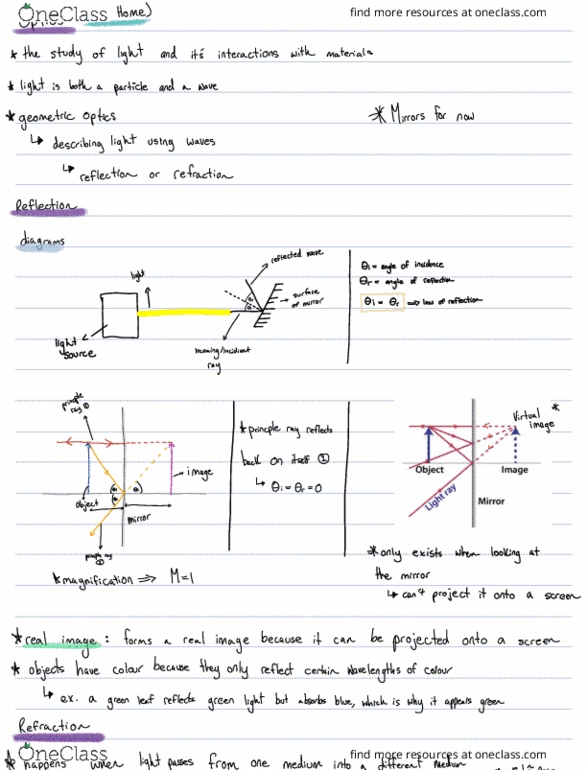 OneClass
find more resources at oneclass.com
Optics
* the study of light and it's interactions with materials
* light is both a particle and a wave
* geometric optics
* Mirrors for now
↳ describing light using waves
↳ reflection or refraction
Reflection
diagrams
reflected wave
light
surface of mirror
light source
incoming/incident ray
θi = angle of incidence
θr = angle of reflection
θi = θr ⇒ law of reflection
principle ray ①
image
object
mirror
* magnification ⇒ M=1
* principle ray reflects
back on itself ①
↳ θi=θr=0
Virtual image *
Object
Image
Light ray
Mirror
* only exists when looking at
the mirror
↳ can't project it onto a screen
* real image : forms a real image because it can be projected onto a screen
* objects have colour because they only reflect certain wavelengths of colour
↳ ex. a green leaf reflects green light but absorbs blue, which is why it appears green
Refraction
OneClass
find more resources at oneclass.com
* happens when light passes from one medium into a different medium